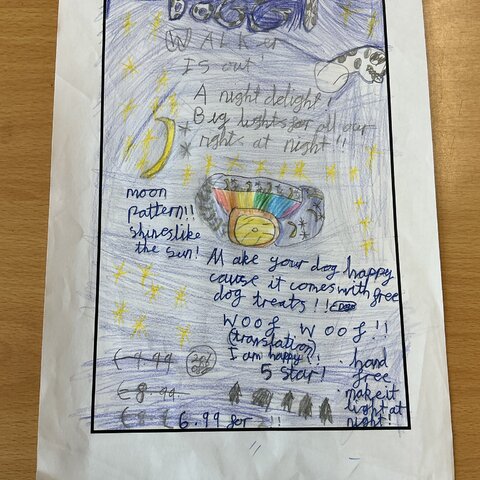 WALKer
Is out!
A night delight!
Big lights for all our
nights at night!!
moon
pattern!!
shines like
the sun!
Make your dog happy
cause it comes with free
dog treats!!
WOOf WOOf!!
(translation)
I am happy!!
5 star!
hand
free
make it
light at
night!
£9.99
£8.99
6.99 for !!